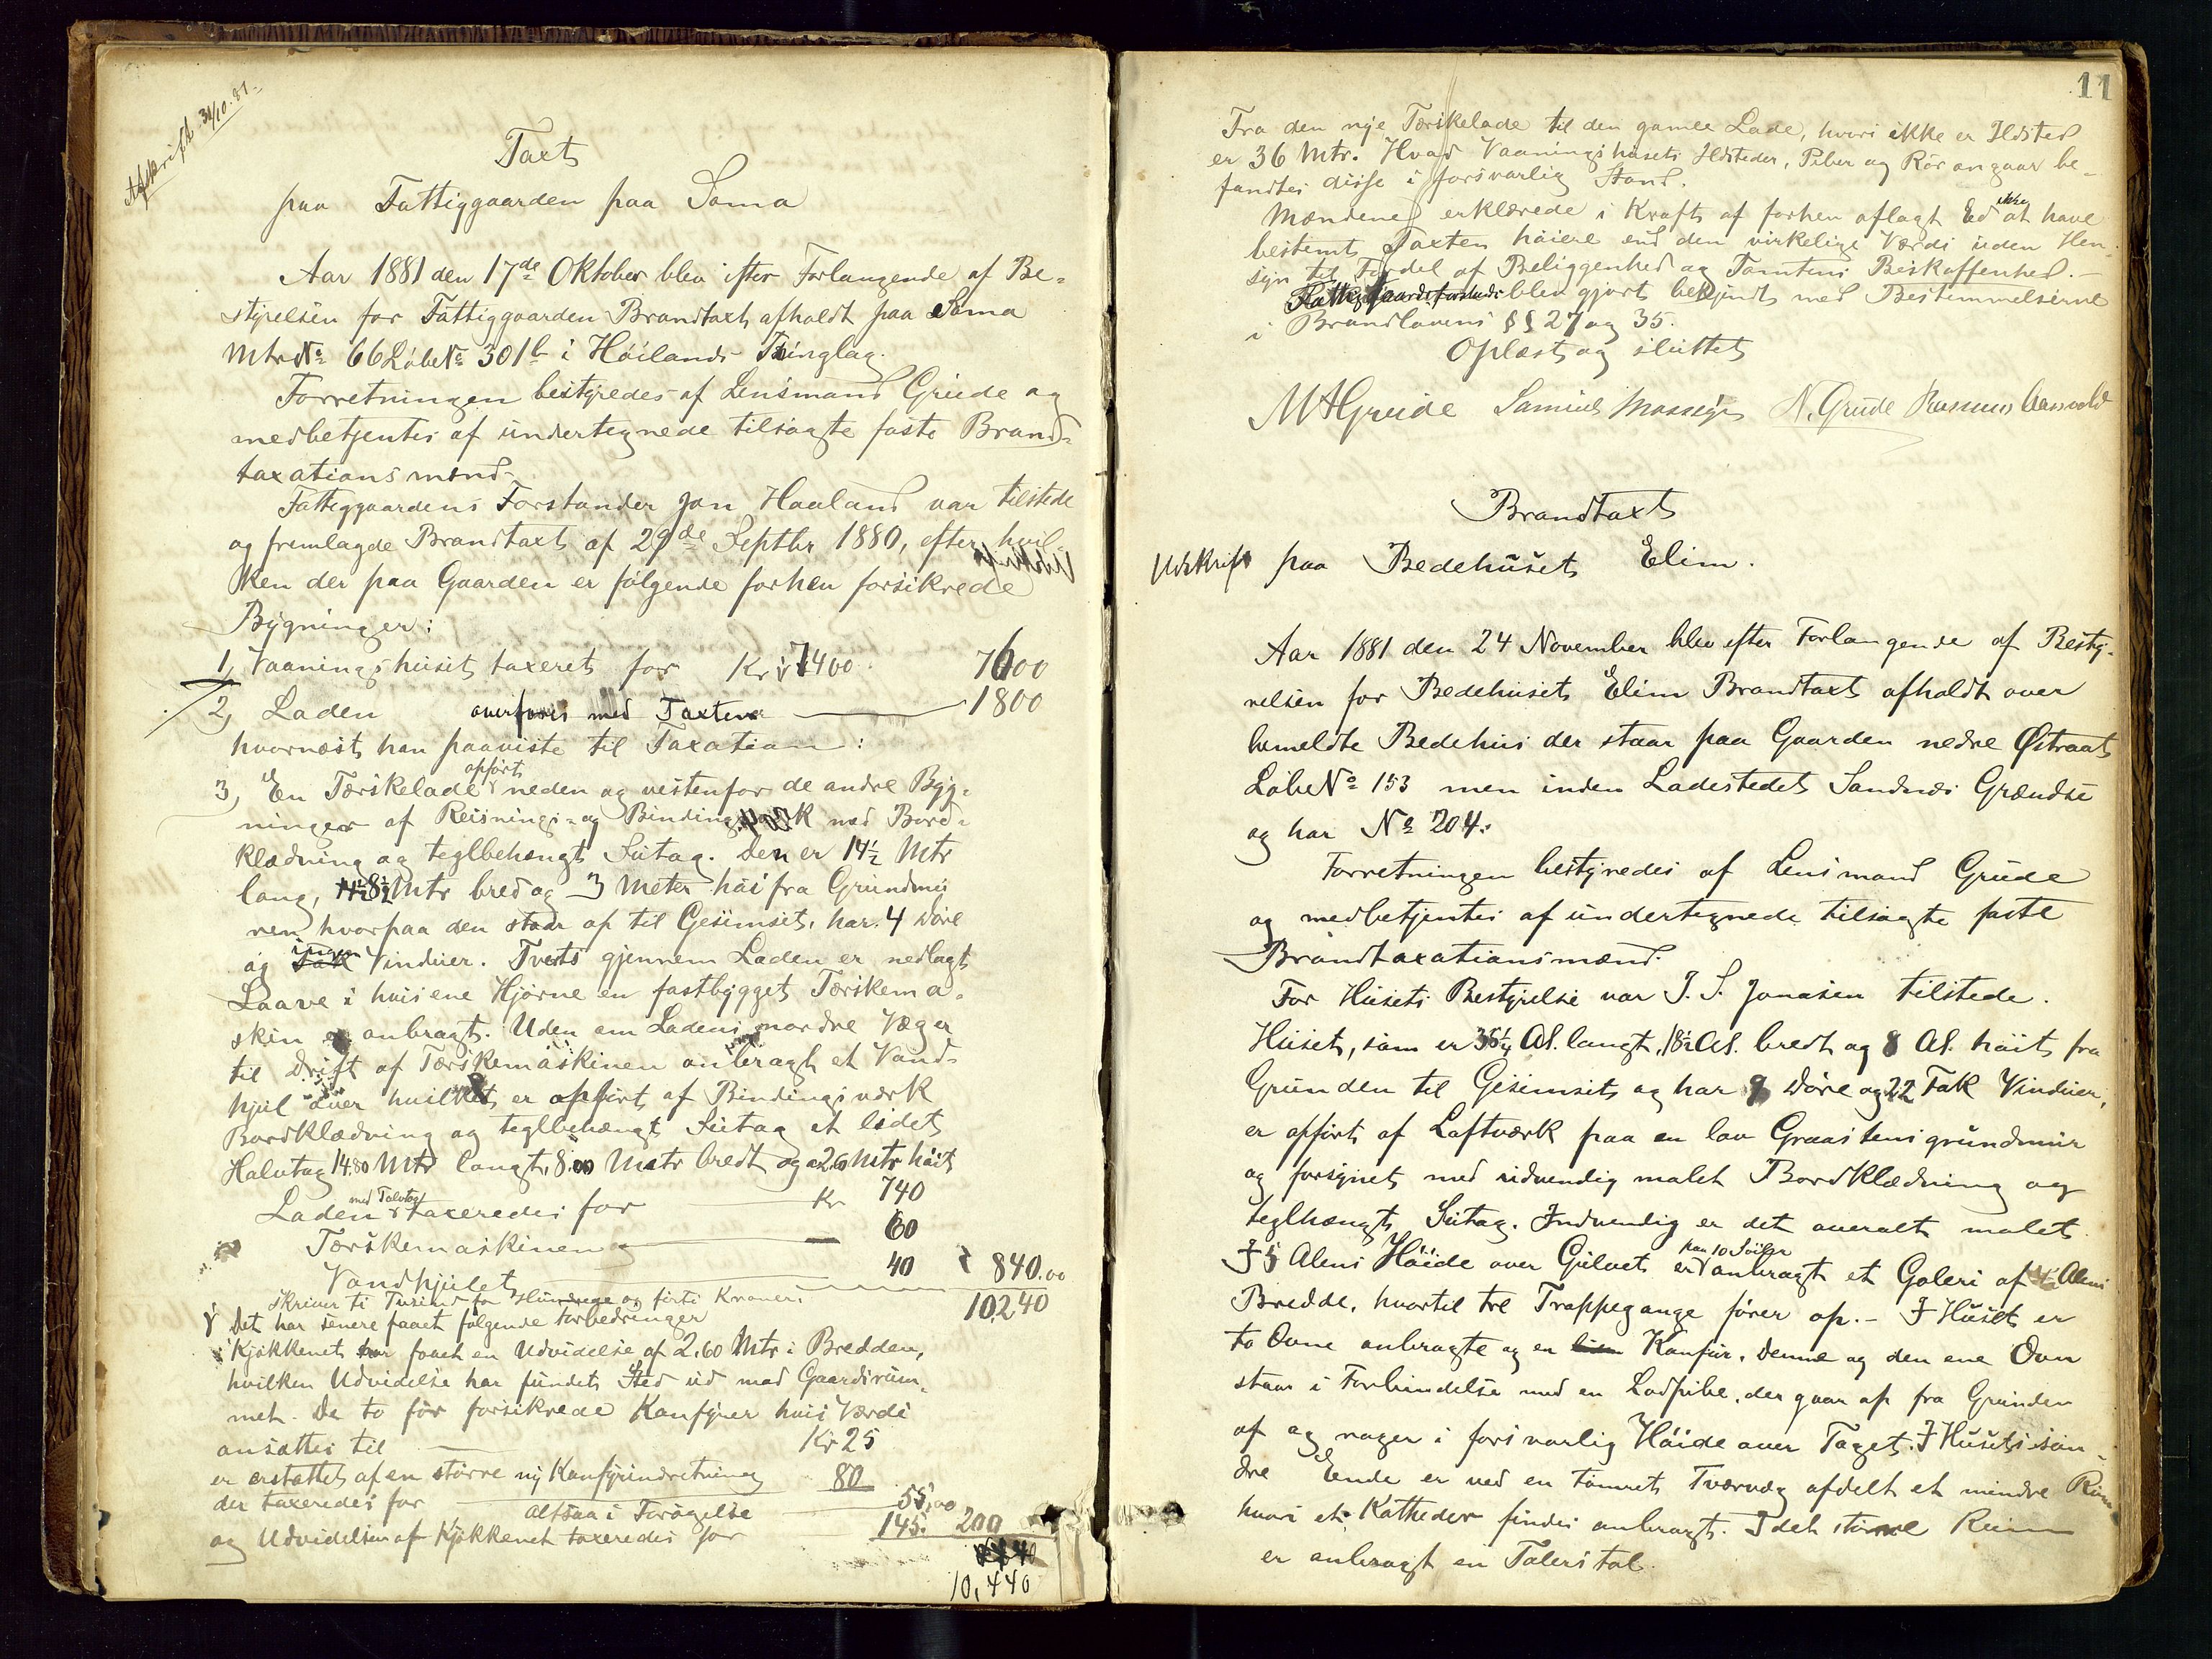 Afskrift 31/10-81-
Taxt
paa Fattiggaarden paa Soma
Aar 1881 den 17de Oktober blev efter Forlangende af Be-
styrelsen for Fattiggaarden Brandtaxt afholdt paa Soma
Mtr No 66 Løbe No 301b i Höilands Tinglag.
Forretningen bestyredes af Lensmand Grude og
medbetjentes af undertegnede tilsagte faste Brand-
taxationsmænd.
Fattiggaardens Forstander Jon Haaland var tilstede
og fremlagde Brandtaxt af 29de Septbr 1880, efter hvil-
ken der paa Gaarden er følgende forhen forsikrede
Bygninger:
1, Vaaningshuset taxeret for Kr 7400. 7600
2, Laden overføres med Taxten 1800
hvornæst han paaviste til Taxation:
3, En Tærskelade opført neden og vestenfor de andre Byg-
ninger af Reisnings- og Bindingsværk med Bord-
klædning og teglbehængt Sutag. Den er 14½ Mtr
lang, 8½ Mtr bred og 3 Meter høi fra Grundmu
ren hvorpaa den staar op til Gesimset, har 4 Døre
og ingen Vinduer. Tverts gjennem Laden er nedlagt
Laave i hvis ene Hjørne en fastbygget Tærskema-
skin er anbragt. Uden om Ladens nordre Væg er
til Drift af Tærskemaskinen anbragt et Vand-
hjul over hvilket er opført af Bindingsværk
Bordklædning og teglbehængt Sutag et lidet
Halvtag 14.80 Mtr langt, 8.00 Metr bredt og 2.60 Mtr høit
Laden med Halvtag taxeredes for Kr 740
Tærskemaskinen og 60
Vandhjulet 40 840.00
skriver ti Tusind to Hundrede og firti Kroner. 10240
Det har senere faaet følgende Forbedringer
Kjøkkenet har faaet en Udvidelse af 2.60 Mtr i Bredden,
hvilken Udvidelse har fundet Sted ud mod Gaardsrum-
met. De to før forsikrede Komfyrer hvis Værdi
ansattes til Kr 25
er erstattet af en større ny Komfyrindretning
der taxeredes for 80
altsaa i Forøgelse 55.00
og Udvidelsen af Kjøkkenet taxeredes for 145. 200
10,440
11
Fra den nye Tærskelade til den gamle Lade, hvori ikke er Ildsted
er 36 Mtr. Hvad Vaaningshusets Ildsteder, Piber og Rör angaar be-
fandtes disse i forsvarlig Stand.
Mændene erklærede i Kraft af forhen aflagt Ed ikke at have
bestemt Taxten høiere end den virkelige Værdi uden Hen-
syn til Fordel af Beliggenhed og Tomtens Beskaffenhed.-
Fattiggaardsforstander blev gjort bekjendt med Bestemmelserne
i Brandlovens §§ 27 og 35.
Oplæst og sluttet
MAGrude Samuel Mossige N. Grude Rasmus Aasvold
Brandtaxt
Udskrift paa Bedehuset Elim.
Aar 1881 den 24 November blev efter Forlangende af Besty-
relsen for Bedehuset Elim Brandtaxt afholdt over
bemeldte Bedehus der staar paa Gaarden nedre Østraat
Løbe No 153 men inden Ladestedet Sandnes Grændse
og har No 204.
Forretningen bestyredes af Lensmand Grude
og medbetjentes af undertegnede tilsagte faste
Brandtaxationsmænd.
For Husets Bestyrelse var J. S. Jonasen tilstede.
Huset, som er 35¼ Al. langt, 18½ Al. bredt og 8 Al. høit fra
Grunden til Gesimset og har 9 Døre og 22 Fak Vinduer,
er opført af Laftværk paa en lav Graastensgrundmur
og forsynet med udvendig malet Bordklædning og
teglhængt Sutag. Indvendig er det overalt malet.
I 5 Alens Høide over Gulvet er paa 10 Søiler anbragt et Galeri af 4 Alens
Bredde, hvortil tre Trappegange fører op.- I Huset er
to Ovne anbragte og en Komfur. Denne og den ene Ovn
staar i Forbindelse med en Lodpibe, der gaar op fra Grunden
af og rager i forsvarlig Høide over Taget. I Husets søn-
dre Ende er ved en tømret Tværvæg afdelt et mindre Rum
hvori et Katheder findes anbragt. I det større Rum
er anbragt en Talerstol.